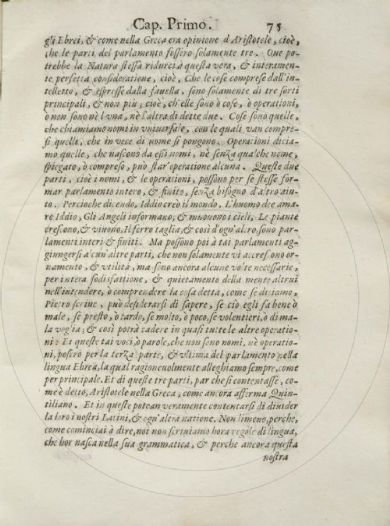 Cap. Primo. 75
gli Ebrei, & come nella Greca era opinione d'Aristotele, cioè,
che le parti del parlamento fossero solamente tre. Que po-
trebbe la Natura stessa ridurci à questa vera, & interamen-
te perfetta consideratione, cioè, Che le cose comprese dall'in-
telletto, & espresse dalla fauella, sono solamente di tre sorti
principali, & non più, cioè, ch'elle sono ò cose, ò operationi,
ò non sono nè l'una, nè l'altra di dette due. Cose sono quelle,
che chiamiamo nomi in vniuersale, con le quali van compre-
si quelli, che in vece di nome si pongono. Operationi dicia-
mo quelle, che nascono da essi nomi, nè senza qualche nome,
spiegato, ò compreso, può star'operatione alcuna. Queste due
parti, cioè i nomi, & le operationi, possono per se stesse for-
mar parlamento intero, & finito, senza bisogno d'altro aiu-
to. Percioche dicendo, Iddio creò il mondo. L'huomo dee ama-
re Iddio, Gli Angeli informano, & muouono i cieli. Le piante
crescono, & viuono. Il ferro taglia, & così d'ogn'altro, sono par-
lamenti interi & finiti. Ma possono poi à tai parlamenti ag-
giungersi alcun'altre parti, che non solamente vi accrescono or-
namento, & vtilità, ma sono ancora alcune volte necessarie,
per intera sodisfattione, & quietamento della mente altrui
nell'intendere, ò comprendere la cosa detta, come se diciamo,
Pietro scriue, può desiderarsi di sapere, se ciò egli fa bene ò
male, se presto, ò tardo, se molto, ò poco, se volentieri, ò di ma-
la voglia; & così potrà cadere in quasi tutte le altre operatio-
ni: Et queste tai voci, ò parole, che non sono nomi, nè operatio-
ni, posero per la terza parte, & vltima del parlamento nella
lingua Ebrea, la qual ragioneuolmente alleghiamo sempre, come
per principale. Et di queste tre parti, par che si contentasse, co-
me è detto, Aristotele nella Greca, come ancora afferma Quin-
tiliano. Et in queste potean veramente contentarsi di diuider
la loro i nostri Latini, & ogn'altra natione. Non limeno, perche,
come cominciai à dire, noi non scriuiamo hora regole di lingua,
che hor nasca nella sua grammatica, & perche ancora questa
nostra